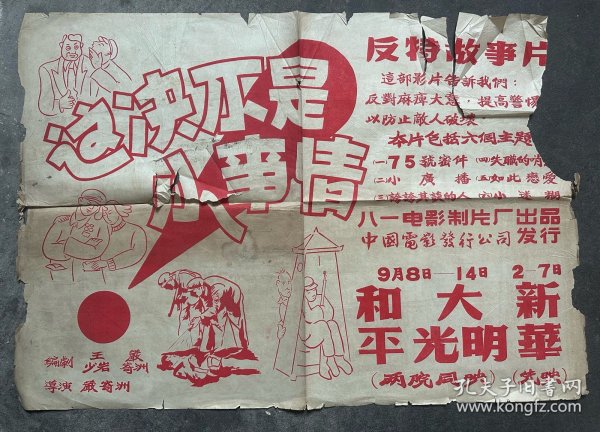 这决不是
小事情
反特故事片
這部影片告訴我們:
反對麻痹大意,提高警惕
以防止敵人破壞
本片包括六個主題
(一)75號密件 (四)失職的
(二)小廣播 (五)如此戀愛
(六)小迷糊
八一电影制片厂出品
中國電影發行公司发行
9月8日—14日 2—7日
和平 大光明 新華
(兩院同映)
編劇 王少岩 嚴寄洲
導演 嚴寄洲
孔夫子旧书网
www.kongfz.com